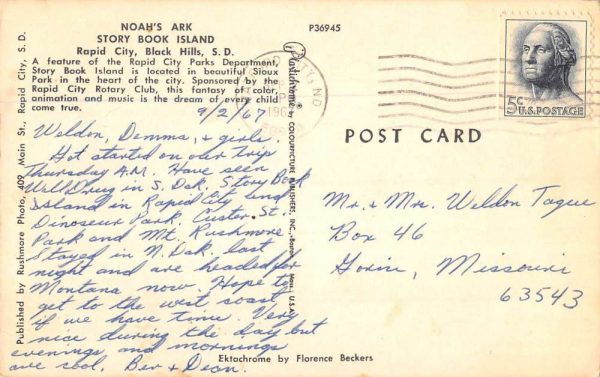 NOAH'S ARK
STORY BOOK ISLAND
Rapid City, Black Hills, S. D.
A feature of the Rapid City Parks Department,
Story Book Island is located in beautiful Sioux
Park in the heart of the city. Sponsored by the
Rapid City Rotary Club, this fantasy of color,
animation and music is the dream of every child
come true.
9/2/67
Weldon, Demma, & girls.
Got started on our trip
Thursday A.M. Have seen
Wall Drug in S. Dak. Story Book
Island in Rapid City and
Dinosaur Park. Custer St.
Park and Mt. Rushmore
Stayed in N. Dak. last
night and are headed for
Montana now. Hope to
get to the west coast
if we have time. Very
nice during the day but
evenings and mornings
are cool. Bev & Dean.
Published by Rushmore Photo, 409 Main St., Rapid City, S. D.
P36945
Plastichrome ® by COLOURPICTURE PUBLISHERS, INC., Boston, Mass., U.S.A.
Ektachrome by Florence Beckers
5c
U.S. POSTAGE
POST CARD
Mr. & Mrs. Weldon Tague
Box 46
Gorin, Missouri
63543